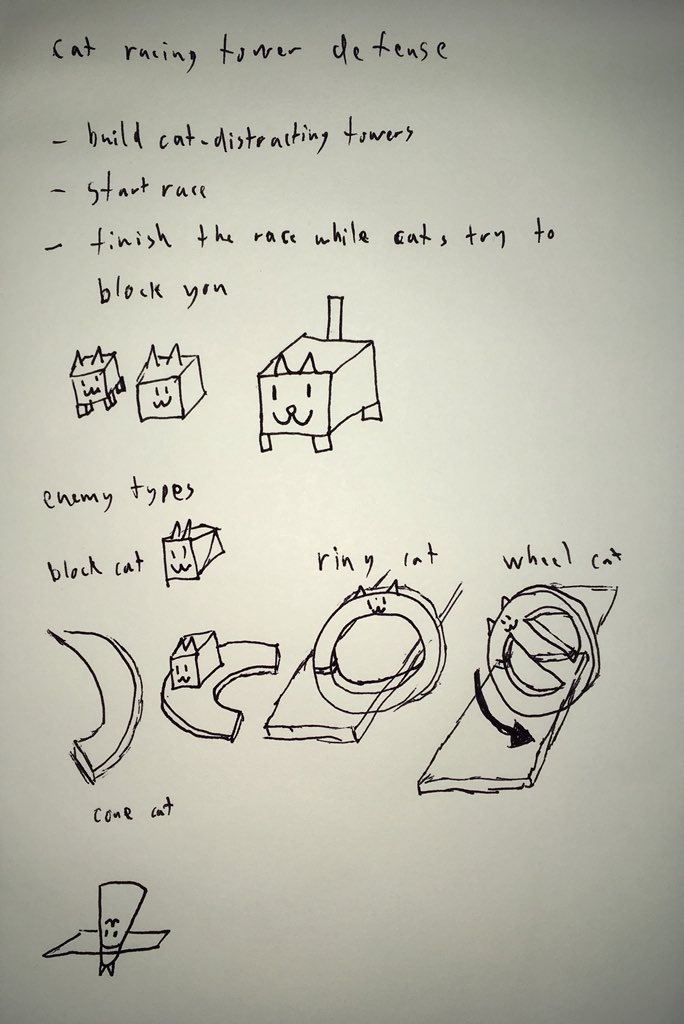 cat racing tower defense
- build cat-distracting towers
- start race
- finish the race while cats try to
block you
enemy types
block cat
ring cat
wheel cat
cone cat